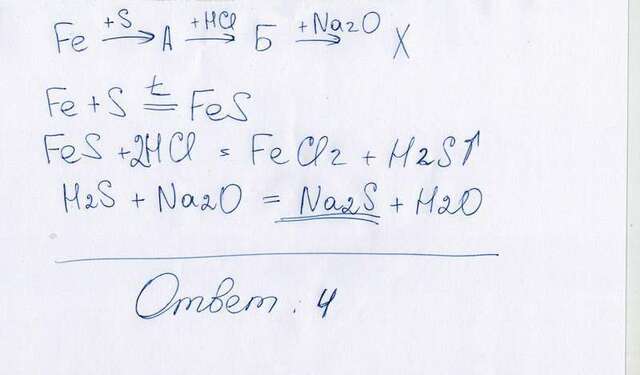 Fe +S → А +HCl → Б +Na2O → X
Fe + S t = FeS
FeS + 2HCl = FeCl2 + H2S↑
H2S + Na2O = Na2S + H2O
Ответ: 4